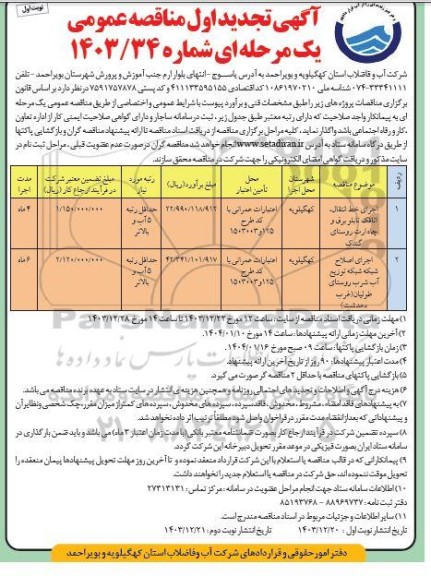 نوبت اول
آگهی تجدید اول مناقصه عمومی
یک مرحله ای شماره ۱۴۰۳/۳۴
شرکت آب و فاضلاب استان کهگیلویه و بویراحمد به آدرس یاسوج - انتهای بلوار ارم جنب آموزش و پرورش شهرستان بویراحمد - تلفن
۰۷۴-۳۳۳۴۱۱۱۱ شناسه ملی ۱۰۸۶۱۹۷۰۲۱۰ کد اقتصادی ۴۱۱۱۳۳۵۹۵۱۵۵ و کد پستی ۷۵۹۱۷۵۷۸۷۸ در نظر دارد بر اساس قانون
برگزاری مناقصات پروژه های زیر را طبق مشخصات فنی و برآورد پیوست با شرایط عمومی و اختصاصی از طریق مناقصه عمومی یک مرحله
ای به پیمانکار واجد صلاحیت که دارای رتبه معتبر طبق جدول زیر، ثبت در سامانه ساجار و دارای گواهی صلاحیت ایمنی کار از اداره تعاون
،کار و رفاه اجتماعی باشد واگذار نماید، کلیه مراحل برگزاری مناقصه از دریافت اسناد مناقصه تا ارائه پیشنهاد مناقصه گران و بازگشایی پاکتها
از طریق درگاه سامانه ستاد به آدرس www.setadiran.ir انجام خواهد شد مناقصه گران در صورت عدم عضویت قبلی ، مراحل ثبت نام در
سایت مذکور و دریافت گواهی امضای الکترونیکی را جهت شرکت در مناقصه محقق سازند.
ردیف موضوع مناقصه شهرستان محل اجرا محل تأمین اعتبار مبلغ برآورد (ریال) رتبه مورد نیاز مبلغ تضمین معتبر شرکت در فرآیند ارجاع کار (ریال) مدت اجرا
۱ اجرای خط انتقال، اتاقک تابلو برق و چاه آرت روستای کندک کهگیلویه اعتبارات عمرانی با کد طرح ۱۵۰۳۰۰۳و۱۲۵ ۲۲/۹۹۰/۱۱۸/۹۱۲ حداقل رتبه ۵ آب و بالاتر ۱/۱۵۰/۰۰۰/۰۰۰ ۴ ماه
۲ اجرای اصلاح شبکه توزیع آب شرب روستای طولیان (غرب کهگیلویه اعتبارات عمرانی با کد طرح ۱۵۰۳۰۰۳و۱۲۵ ۴۲/۳۴۱/۱۰۱/۹۱۷ حداقل رتبه ۵ آب و بالاتر ۲/۱۲۰/۰۰۰/۰۰۰ ۶ ماه
۱) مهلت زمانی دریافت اسناد مناقصه از سایت: ساعت ۱۲ مورخ ۱۴۰۳/۱۲/۲۳ تا ساعت ۱۴ مورخ ۱۴۰۳/۱۲/۲۸
۲) آخرین مهلت زمانی ارائه پیشنهادها: ساعت ۱۴ مورخ ۱۴۰۴/۰۱/۱۰
۳) زمان بازگشایی پاکتها: ساعت ۰۹ صبح مورخ ۱۴۰۴/۰۱/۱۶
۴) مدت اعتبار پیشنهادها: ۹۰ روز از تاریخ آخرین ارائه پیشنهاد.
۵) بازگشایی پاکتهای مناقصه با حداقل ۲ مناقصه گر صورت می گیرد.
۶) هزینه درج آگهی و اصلاحات و تجدید های احتمالی روزنامه و همچنین هزینه ی انتشار در سایت ستاد به عهده برنده مناقصه می باشد.
۷) به پیشنهادهای فاقد امضاء، مشروط، مخدوش، فاقد سپرده، سپرده های مخدوش، سپرده های کمتر از میزان مقرر، چک شخصی و نظایر آن
و پیشنهاداتی که بعد از انقضاء مدت مقرر در فراخوان واصل شود مطلقاً ترتیب اثر داده نخواهد شد.
۸) سپرده تضمین شرکت در فرآیند ارجاع کار بصورت ضمانتنامه معتبر بانکی (با مدت زمان اعتبار ۳ ماه) می باشد و باید ضمن بارگذاری در
سامانه ستاد ایران بصورت فیزیکی در موعد مقرر تحویل دبیرخانه این شرکت گردد.
۹) پیمانکارانی که در قالب مناقصه یا استعلام با این شرکت قرارداد منعقد نموده و تا آخرین روز مهلت تحویل پیشنهادها پیمان منعقده را
تحویل موقت ننموده اند، حق شرکت در مناقصه یا استعلام جدید را نخواهند داشت.
۱۰) اطلاعات سامانه ستاد جهت انجام مراحل عضویت در سامانه : مرکز تماس: ۲۷۳۱۳۱۳۱
دفتر ثبت نامه: ۸۸۹۶۹۷۳۷ - ۸۵۱۹۳۷۶۸
۱۱) سایر اطلاعات و جزئیات مربوط در اسناد مناقصه مندرج است.
تاریخ انتشار نوبت اول: ۱۴۰۳/۱۲/۲۰ تاریخ انتشار نوبت دوم: ۱۴۰۳/۱۲/۲۱
دفتر امور حقوقی و قراردادهای شرکت آب و فاضلاب استان کهگیلویه و بویراحمد